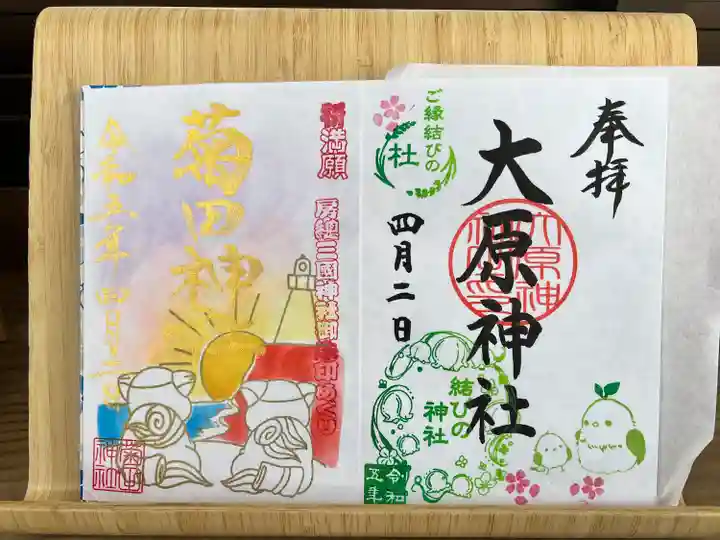 奉拝
大原神社
四月二日
ご縁結びの
社
結びの
神社
令和
五年
祈満願 房総三国神社御朱印めぐり
菊田神社
令和五年 四月二日